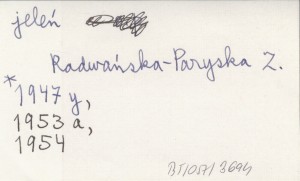 jeleń
Radwańska-Paryska Z.
*1947 y,
1953 a,
1954
BT/057/3694